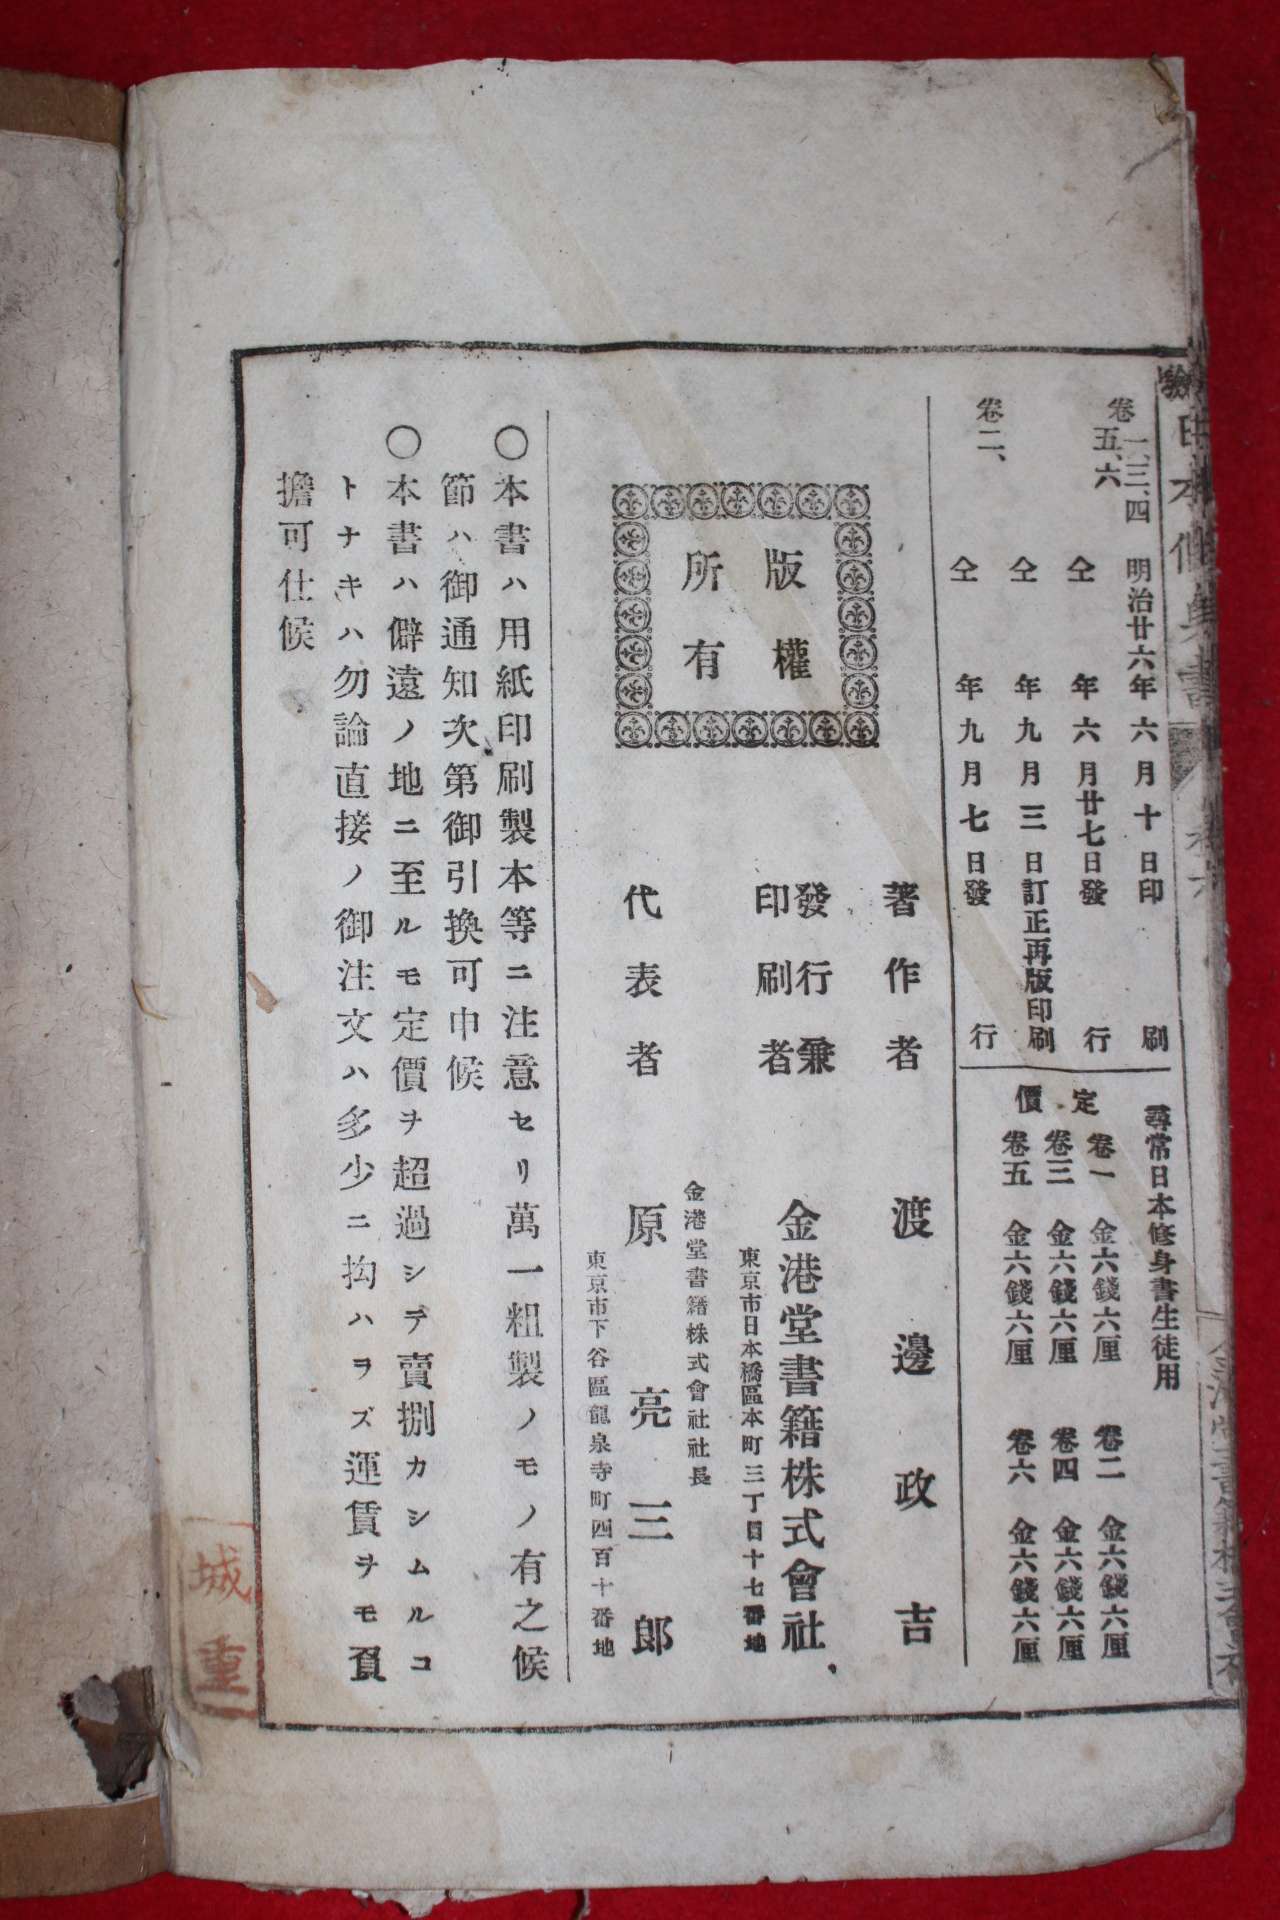 卷一、三、四
五、六
明治廿六年六月十日印刷
仝年六月廿七日發行
仝年九月三日訂正再版印刷
卷二、
仝年九月七日發行
尋常日本修身書生徒用
定價
卷一 金六錢六厘 卷二 金六錢六厘
卷三 金六錢六厘 卷四 金六錢六厘
卷五 金六錢六厘 卷六 金六錢六厘
版權
所有
著作者 渡邊政吉
發行兼
印刷者
金港堂書籍株式會社
東京市日本橋區本町三丁目十七番地
金港堂書籍株式會社社長
代表者 原亮三郎
東京市下谷區龍泉寺町四百十番地
〇本書ハ用紙印刷製本等ニ注意セリ萬一粗製ノモノ有之候
節ハ御通知次第御引換可申候
〇本書ハ僻遠ノ地ニ至ルモ定價ヲ超過シテ賣捌カシムルコ
トナキハ勿論直接ノ御注文ハ多少ニ拘ハラズ運賃ヲモ負
擔可仕候
城重